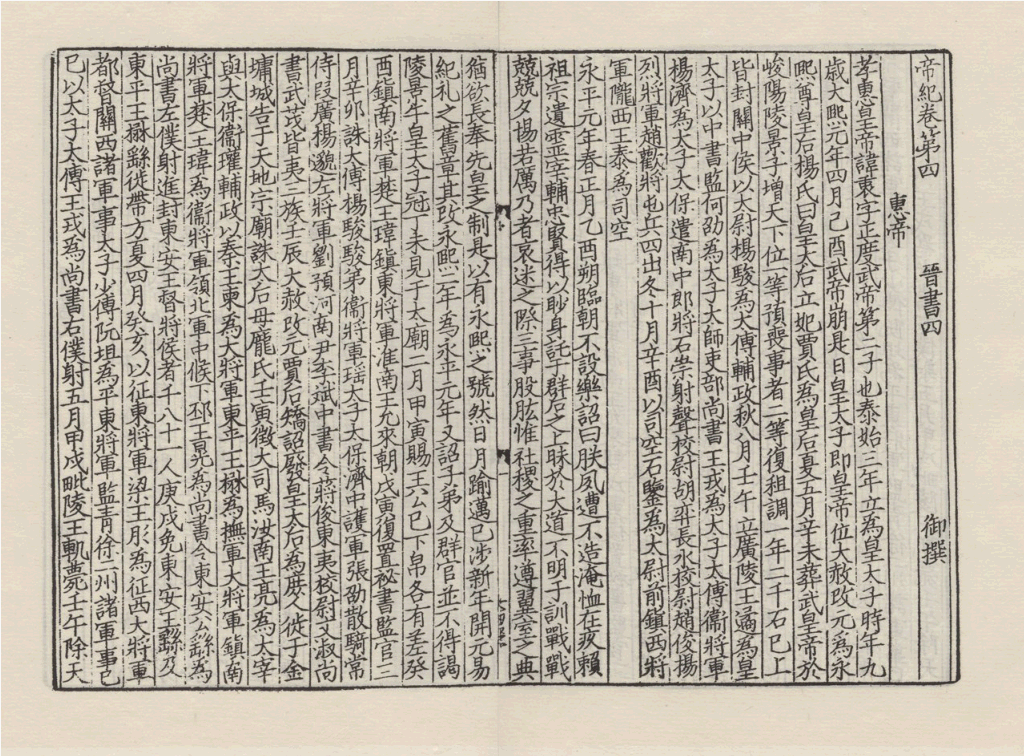 帝紀卷第四 晉書四 御撰
惠帝
孝惠皇帝諱衷字正度武帝第二子也泰始三年立為皇太子時年九
歲大熙元年四月己酉武帝崩是日皇太子即皇帝位大赦改元為永
熙尊皇后楊氏曰皇太后立妃賈氏為皇后夏五月辛未葬武皇帝於
峻陽陵景子增天下位一等預喪事者二等復租調一年二千石已上
皆封關中侯以太尉楊駿為太傅輔政秋八月壬午立廣陵王遹為皇
太子以中書監何劭為太子太師吏部尚書王戎為太子太傅衞將軍
楊濟為太子太保遣南中郎將石崇射聲校尉胡弈長水校尉趙俊揚
烈將軍趙歡將屯兵四出冬十月辛酉以司空石鑒為太尉前鎮西將
軍隴西王泰為司空
永平元年春正月乙酉朔臨朝不設樂詔曰朕夙遭不造淹恤在疚賴
祖宗遺靈宰輔忠賢得以眇身託于群后之上昧於大道不明于訓戰戰
兢兢夕惕若厲乃者哀迷之際三事股肱惟社稷之重率遵翼室之典
猶欲長奉先皇之制是以有永熙之號然日月踰邁已涉新年開元易
紀礼之舊章其改永熙二年為永平元年又詔子弟及群官並不得謁
陵景午皇太子冠丁未見于太廟二月甲寅賜王公已下帛各有差癸
酉鎮南將軍楚王瑋鎮東將軍淮南王允來朝戊寅復置祕書監官三
月辛卯誅太傅楊駿駿弟衞將軍瑶太子太保濟中護軍張劭散騎常
侍段廣楊邈左將軍劉預河南尹李斌中書令蔣俊東夷校尉文淑尚
書武茂皆夷三族壬辰大赦改元賈后矯詔廢皇太后為庶人徙于金
墉城告于天地宗廟誅太后母龐氏壬寅徵大司馬汝南王亮為太宰
與太保衞瓘輔政以秦王柬為大將軍東平王楙為撫軍大將軍鎮南
將軍楚王瑋為衞將軍領北軍中候下邳王晃為尚書令東安公繇為
尚書左僕射進封東安王督將侯者千八十一人庚戌免東安王繇及
東平王楙繇徙帶方夏四月癸亥以征東將軍梁王肜為征西大將軍
都督關西諸軍事太子少傅阮坦為平東將軍監青徐二州諸軍事己
巳以太子太傅王戎為尚書右僕射五月甲戌毗陵王軌薨壬午除天